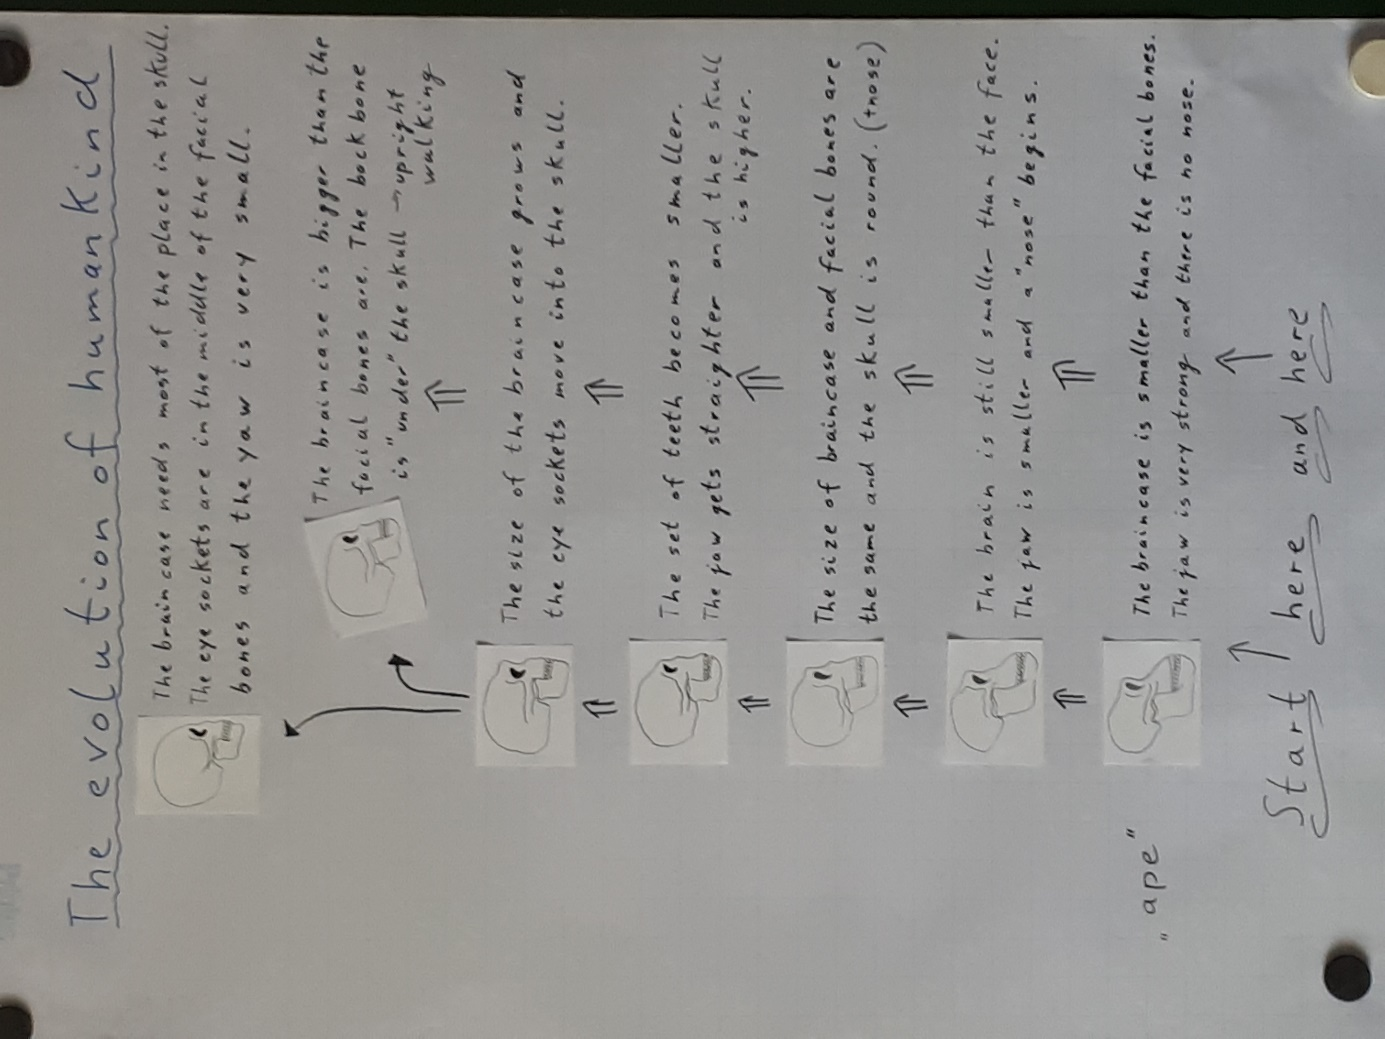 The evolution of humankind
The braincase needs most of the place in the skull.
The eye sockets are in the middle of the facial
bones and the yaw is very small.
The braincase is bigger than the
facial bones are. The backbone
is "under" the skull → upright
walking
⇑
The size of the braincase grows and
the eye sockets move into the skull.
⇑ ⇑
The set of teeth becomes smaller.
The jaw gets straighter and the skull
is higher.
⇑ ⇑
The size of braincase and facial bones are
the same and the skull is round. (+nose)
⇑ ⇑
The brain is still smaller than the face.
The jaw is smaller and a "nose" begins.
⇑ ⇑
"ape"
The braincase is smaller than the facial bones.
The jaw is very strong and there is no nose.
↑ ↑
Start here and here